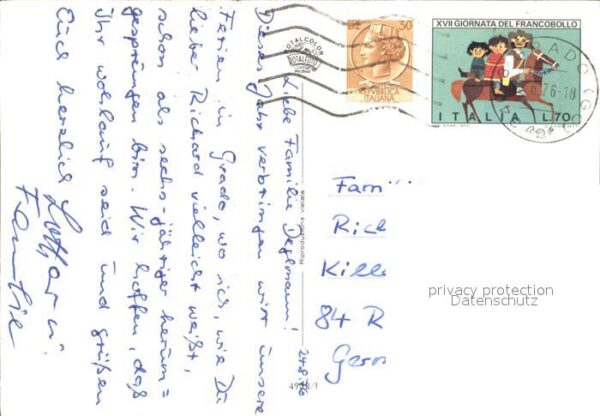 Liebe Familie Deglmann!
Dieses Jahr verbringen wir unsere
Ferien in Grado, wo ich, wie Du
lieber Richard vielleicht weißt,
schon als sechs-jähriger herum=
gesprungen bin. Wir hoffen, daß
Ihr wohlauf seid und grüßen
Euch herzlich
Lothar u.
Familie
24.8.76
TOTALCOLOR
Riproduzione vietata
XVII GIORNATA DEL FRANCOBOLLO
ITALIA L.70
50
REPUBBLICA
ITALIANA
GRADO (GO)
76-18
Fam
Ric
Kille
84 R
Germ
privacy protection
Datenschutz